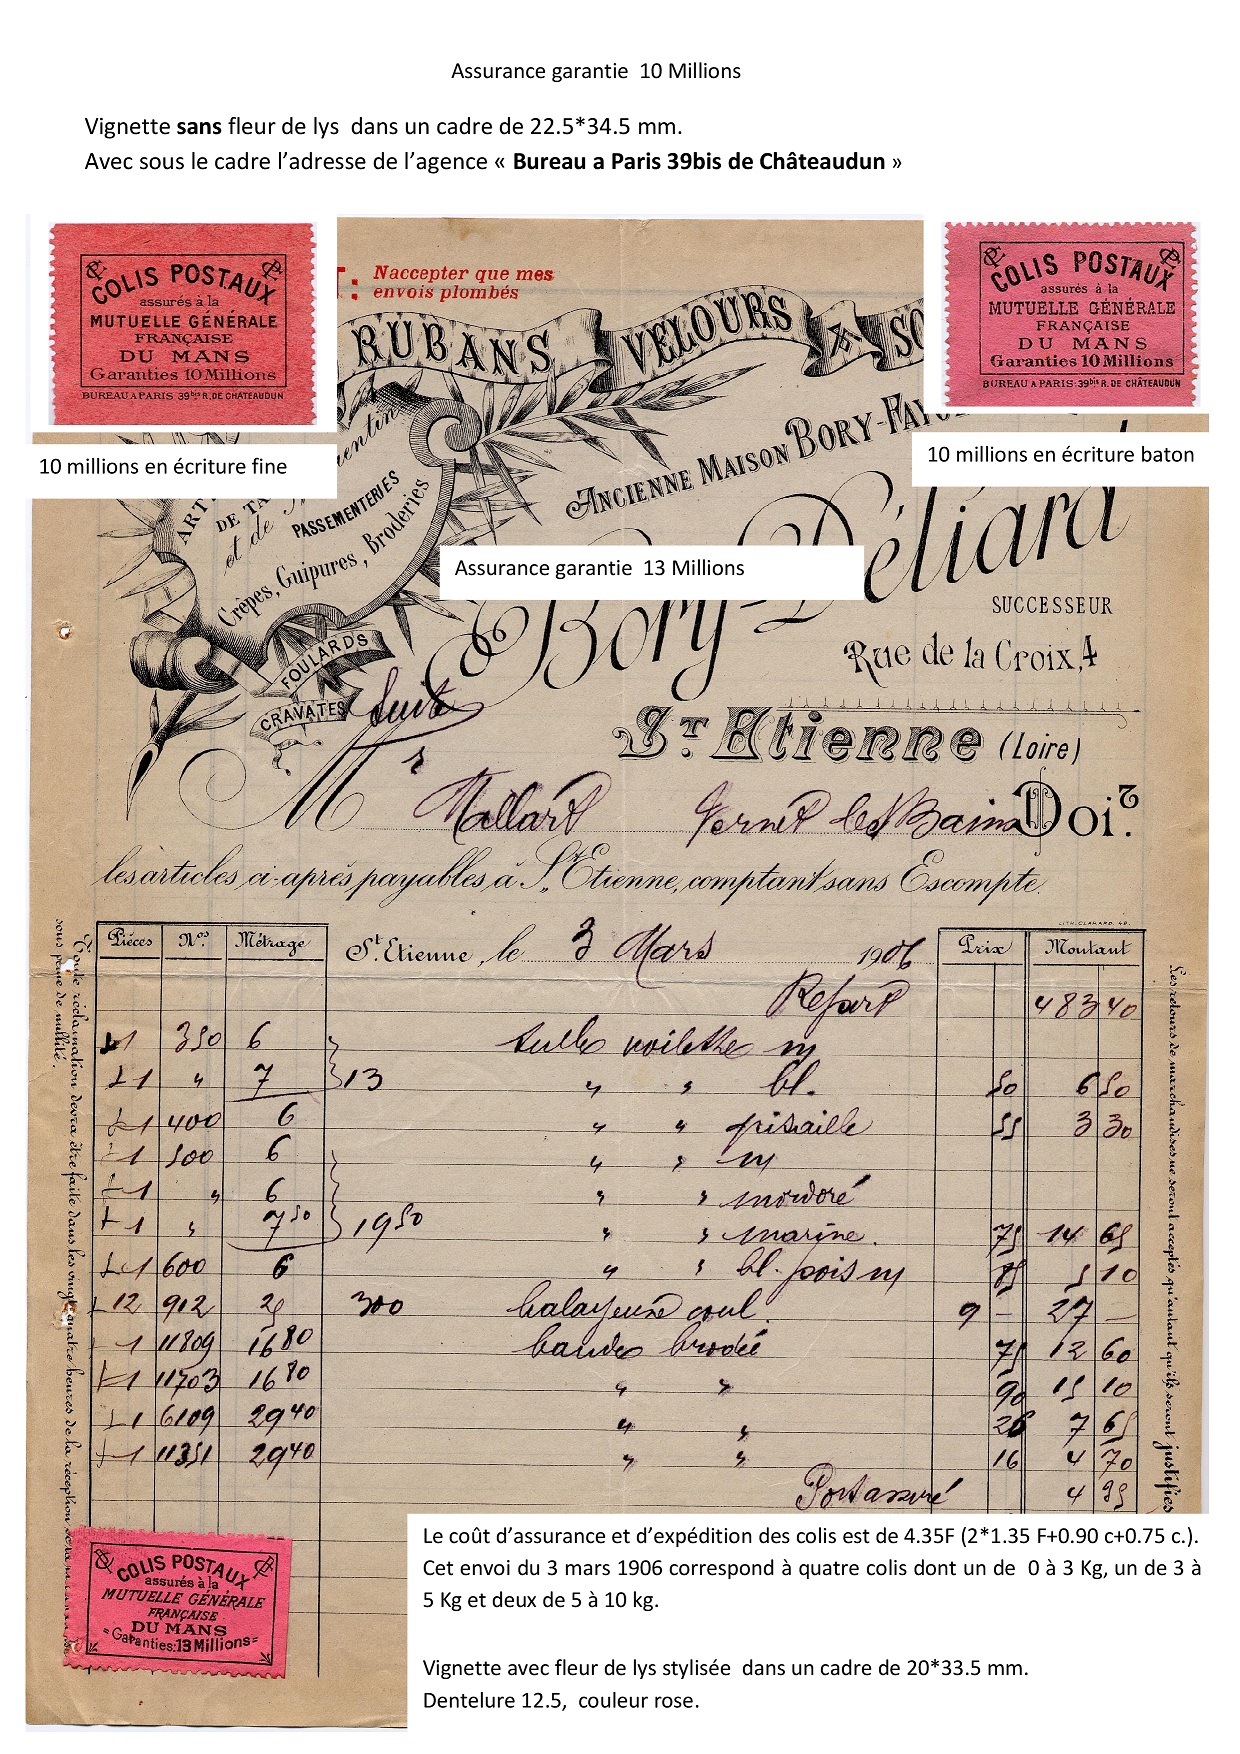 Assurance garantie  10 Millions
Vignette sans fleur de lys  dans un cadre de 22.5*34.5 mm.
Avec sous le cadre l’adresse de l’agence « Bureau a Paris 39bis de Châteaudun »
COLIS POSTAUX
assurés à la
MUTUELLE GÉNÉRALE
FRANÇAISE
DU MANS
Garanties 10 Millions
BUREAU A PARIS 39bis R. DE CHÂTEAUDUN
COLIS POSTAUX
assurés à la
MUTUELLE GÉNÉRALE
FRANÇAISE
DU MANS
Garanties 10 Millions
BUREAU A PARIS:39bis R. DE CHÂTEAUDUN
10 millions en écriture fine
10 millions en écriture baton
Naccepter que mes
envois plombés
RUBANS VELOURS &
ANCIENNE MAISON BORY-
DE
et de
PASSEMENTERIES
Crêpes, Guipures, Broderies
FOULARDS
CRAVATES
Assurance garantie  13 Millions
Bory-Déliard
SUCCESSEUR
Rue de la Croix, 4
St Etienne (Loire)
Suite
Mr Mallart Vernet les Bains Doit
les articles ci-après payables à St Etienne, comptant sans Escompte.
LITH. CLARARD. 49.
Pièces Nos Métrage St Etienne, le 3 Mars 1906 Prix Montant
Report 483 40
1 350 6 tulle voilette m
1 " 7 13 " " bl. 50 6 50
1 400 6 " " grisaille 55 3 30
1 500 6 " " m
1 " 6 " " mordoré
1 " 7 50 19 50 " " marine. 75 14 65
1 600 6 " " bl. pois m 85 5 10
12 912 25 300 balayeuse coul. 9 – 27 –
1 11809 16 80 bande brodée 75 12 60
1 11703 16 80 " " 90 15 10
1 6109 29 40 " " 26 7 65
1 11351 29 40 " " 16 4 70
Port assuré 4 35
Toute réclamation devra être faite dans les vingt quatre heures de la réception
sous peine de nullité.
Les retours de marchandises ne seront acceptés qu'autant qu'ils seront justifiés
COLIS POSTAUX
assurés à la
MUTUELLE GÉNÉRALE
FRANÇAISE
DU MANS
=Garanties:13 Millions=
Le coût d’assurance et d’expédition des colis est de 4.35F (2*1.35 F+0.90 c+0.75 c.).
Cet envoi du 3 mars 1906 correspond à quatre colis dont un de  0 à 3 Kg, un de 3 à
5 Kg et deux de 5 à 10 kg.
Vignette avec fleur de lys stylisée  dans un cadre de 20*33.5 mm.
Dentelure 12.5,  couleur rose.